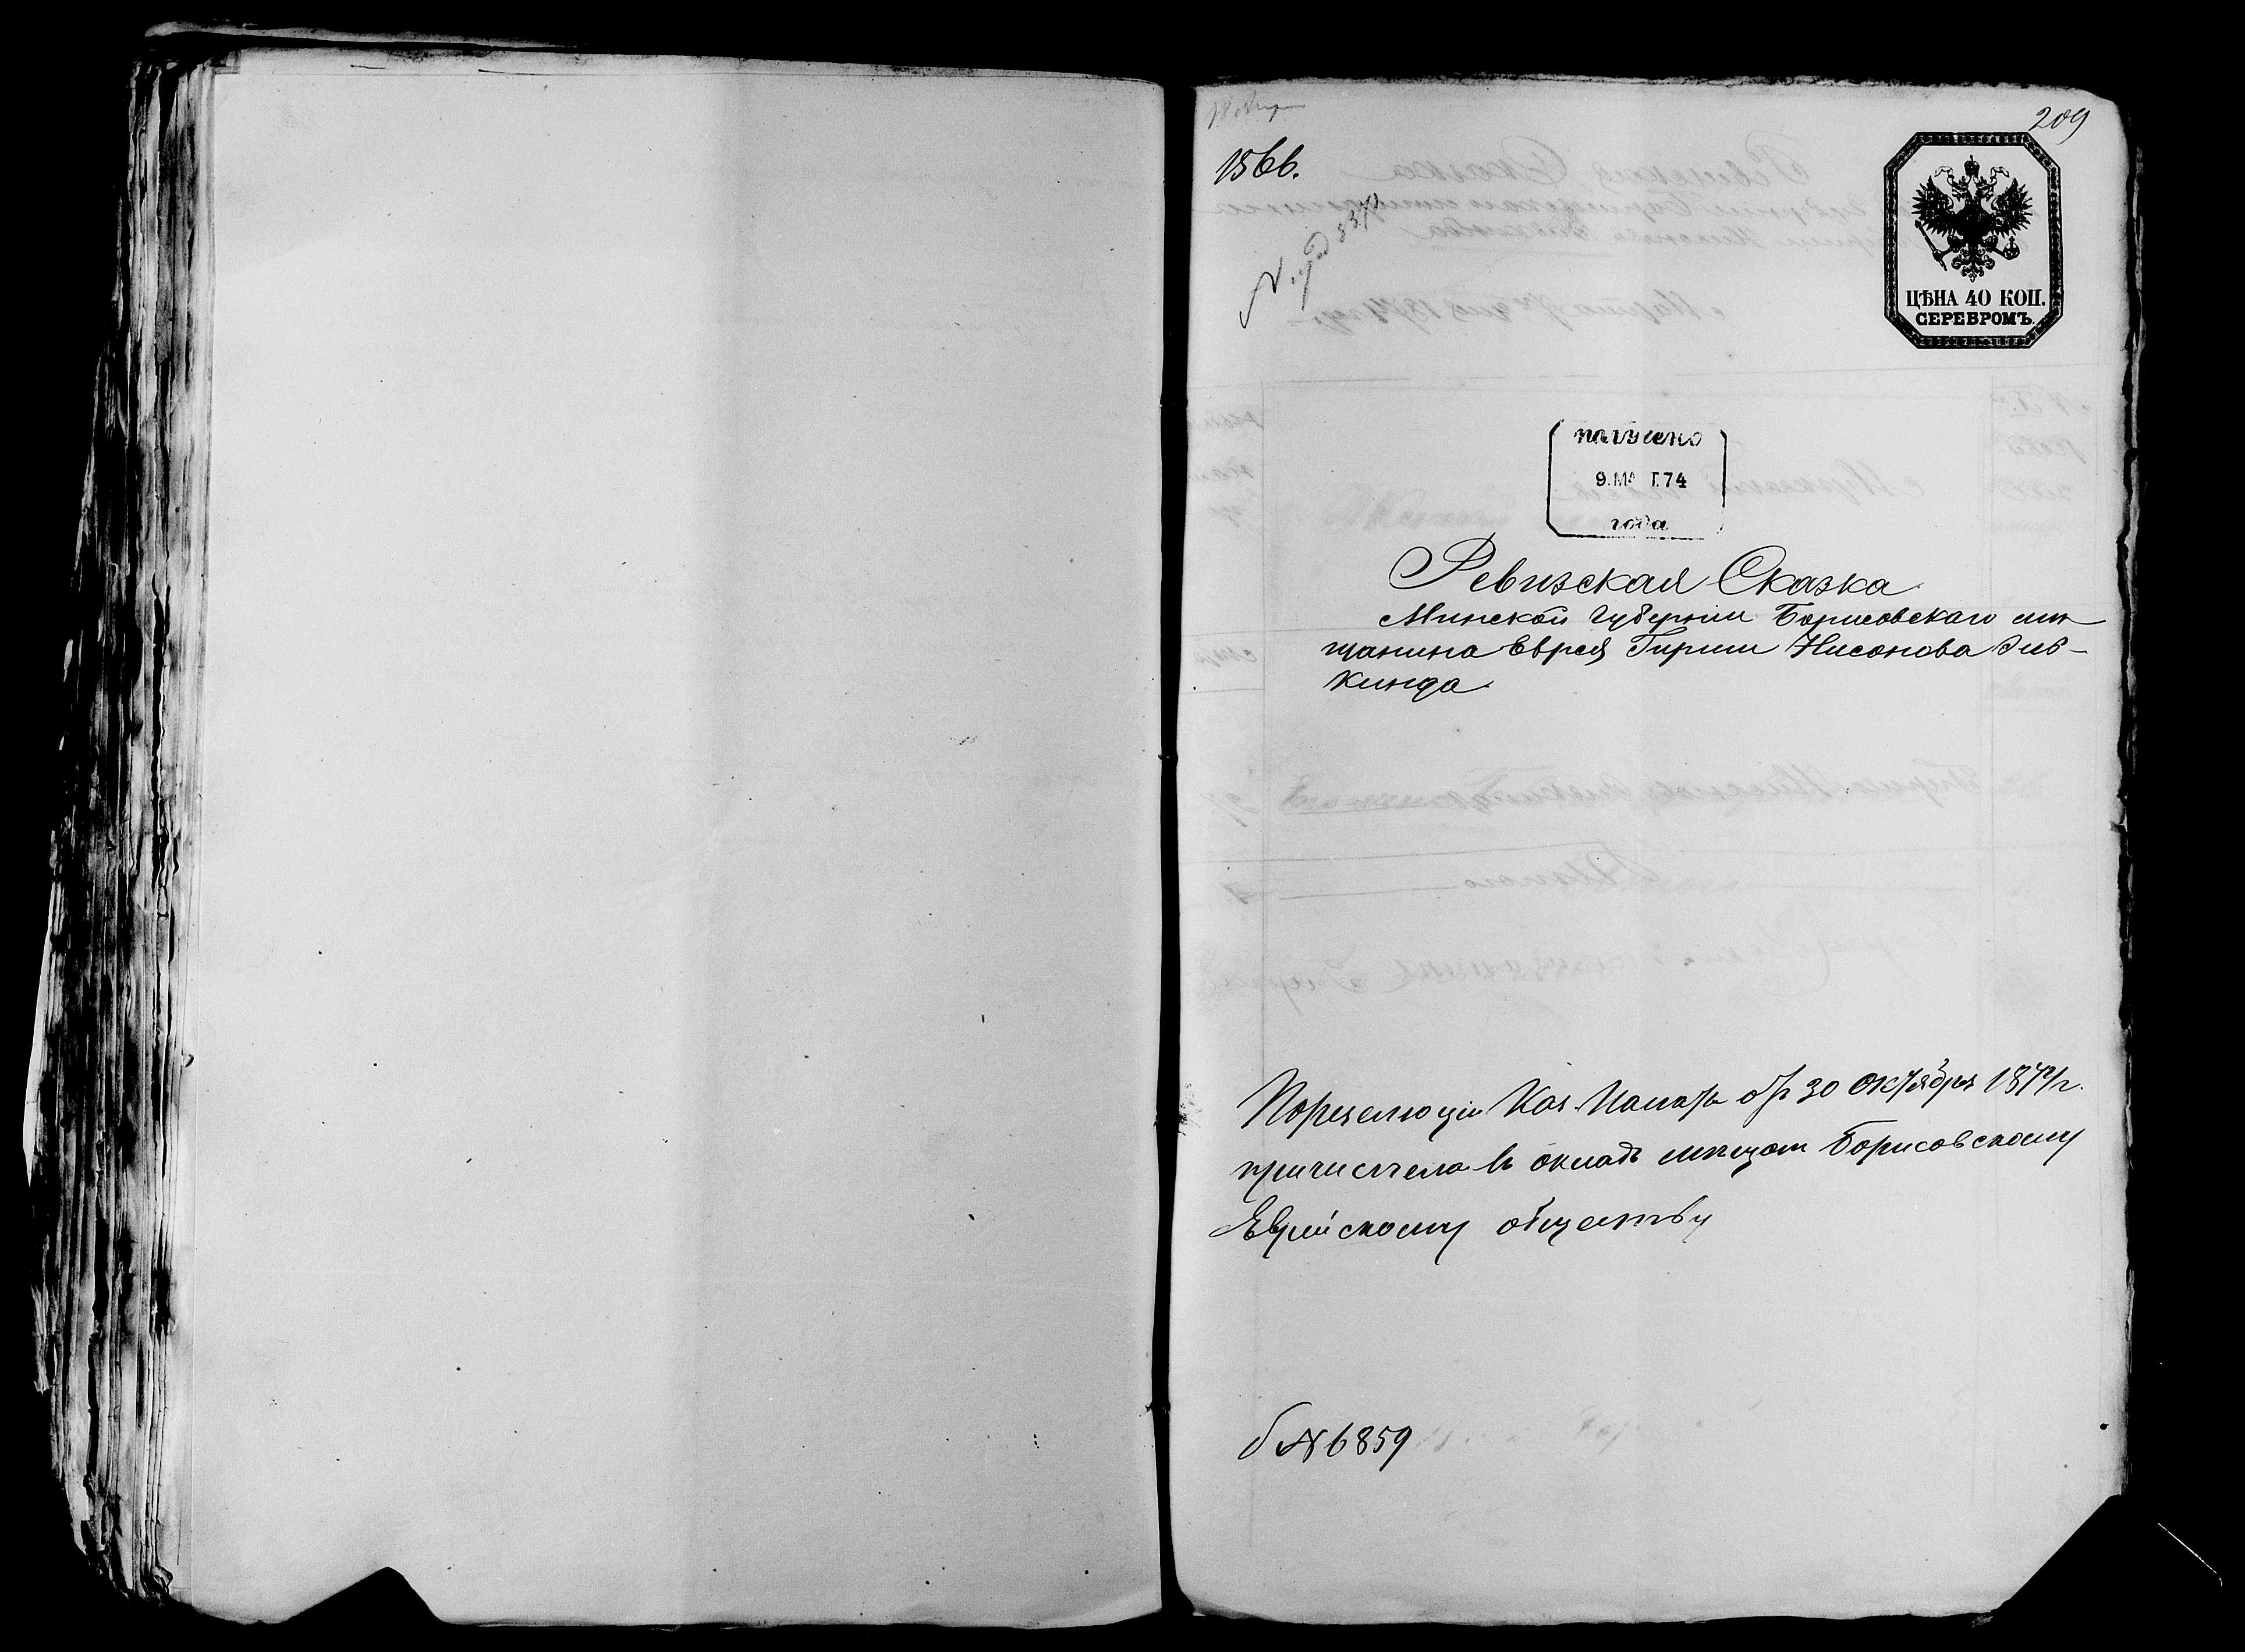 209
1566.
ЦѢНА 40 КОП.
СЕРЕБРОМЪ.
получено
9. МА Т. 74
года
Ревизская Сказка
Минской губерніи Борисовскаго мѣ-
щанина Еврея Гирши Нисонова Зив-
кинда
По резолюціи Каз. Палаты отъ 30 Октября 1874 г.
причислена въ окладъ мѣщан Борисовскому
Еврейскому обществу
б № 6859